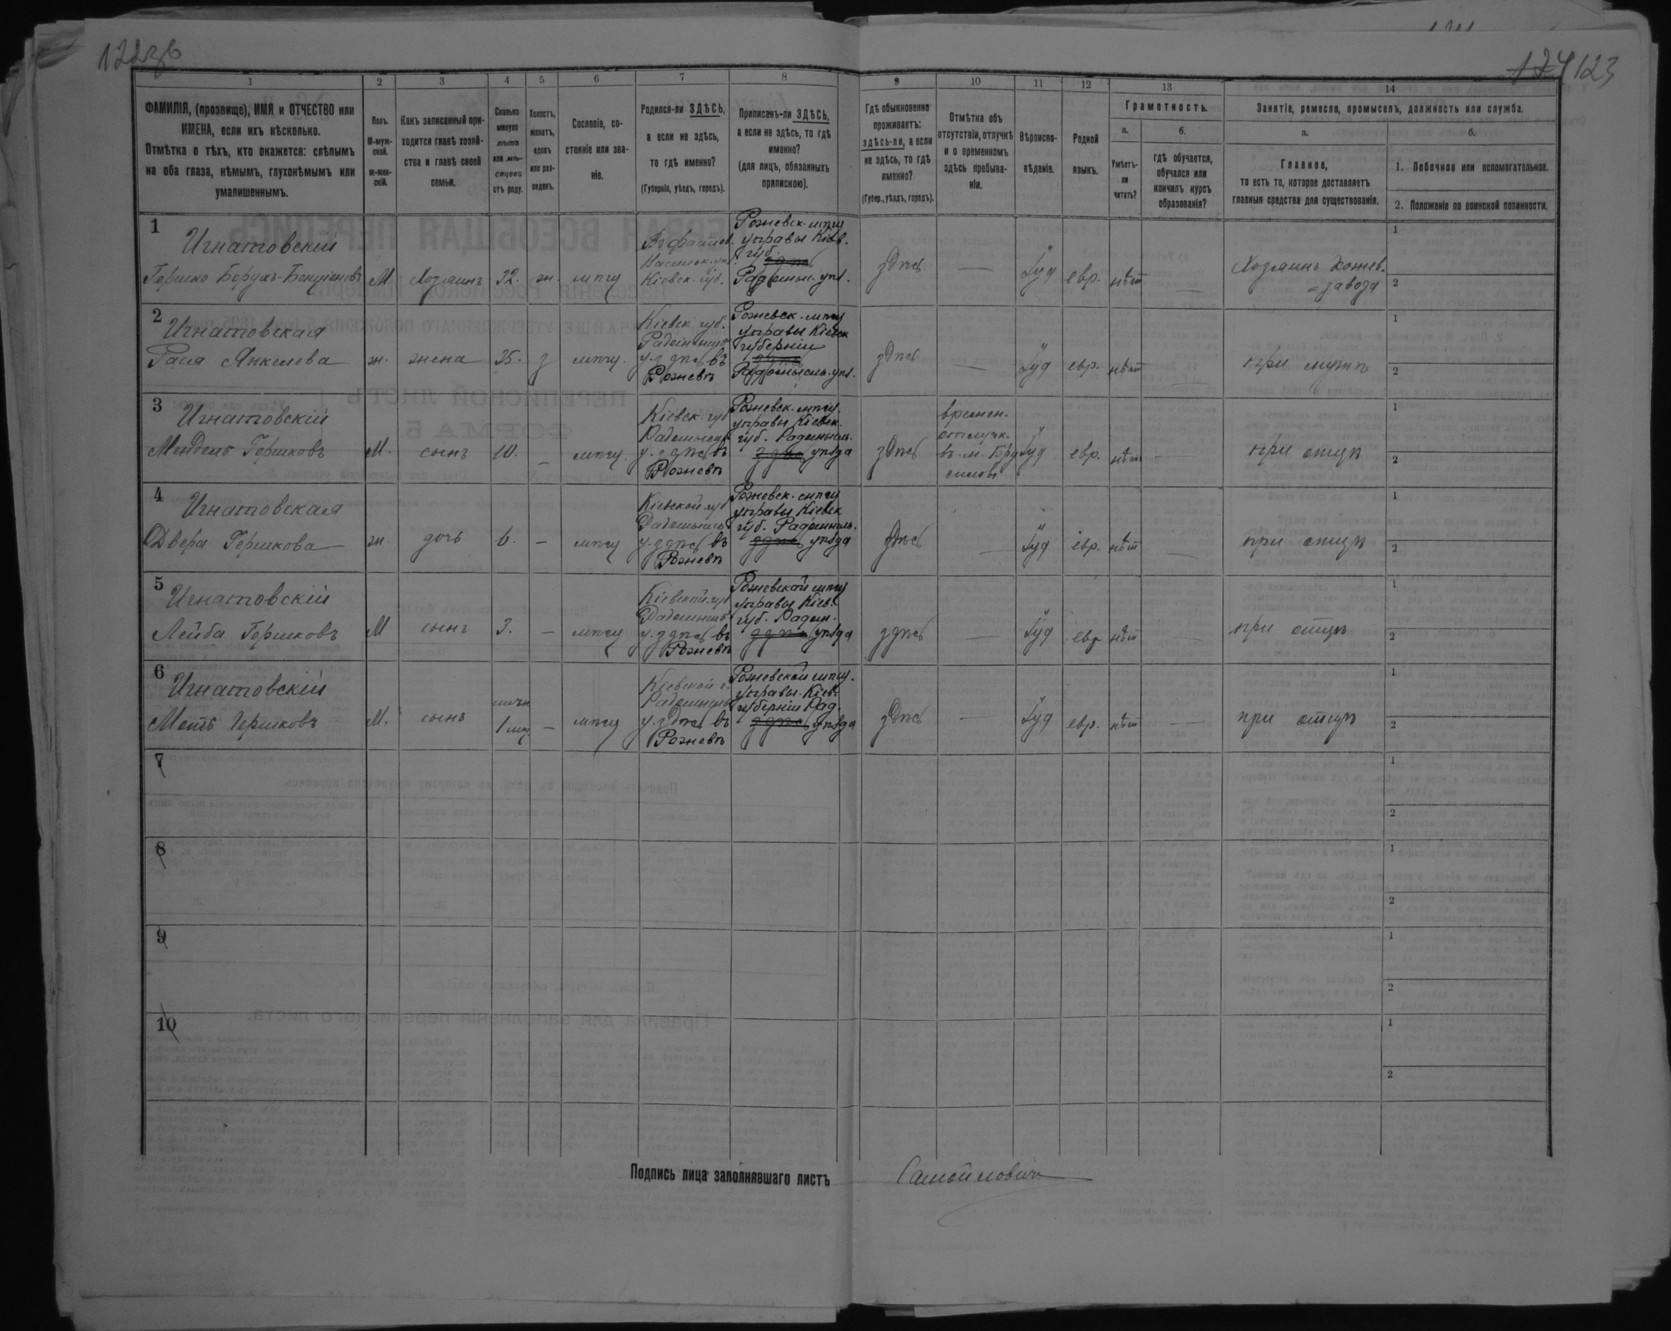 122об
123
1 2 3 4 5 6 7 8 9 10 11 12 13 14
ФАМИЛІЯ, (прозвище), ИМЯ и ОТЧЕСТВО или
ИМЕНА, если ихъ нѣсколько.
Отмѣтка о тѣхъ, кто окажется: слѣпымъ
на оба глаза, нѣмымъ, глухонѣмымъ или
умалишеннымъ.
Полъ.
М-муж-
ской.
ж-жен-
скій.
Какъ записанный при-
ходится главѣ хозяй-
ства и главѣ своей
семьи.
Сколько
минуло
лѣтъ
или мѣ-
сяцевъ
отъ роду.
Холостъ,
женатъ,
вдовъ
или раз-
веденъ.
Сословіе, со-
стояніе или зва-
ніе.
Родился-ли ЗДѢСЬ,
а если не здѣсь,
то гдѣ именно?
(Губернія, уѣздъ, городъ).
Приписанъ-ли ЗДѢСЬ,
а если не здѣсь, то гдѣ
именно?
(для лицъ, обязанныхъ
припискою).
Гдѣ обыкновенно
проживаетъ:
здѣсь-ли, а если
не здѣсь, то гдѣ
именно?
(Губер., уѣздъ, городъ).
Отмѣтка объ
отсутствіи, отлучкѣ
и о временномъ
здѣсь пребыва-
ніи.
Вѣроиспо-
вѣданіе.
Родной
языкъ.
Грамотность.
а.
Умѣетъ-
ли
читать?
б.
гдѣ обучается,
обучался или
кончилъ курсъ
образованія?
Занятіе, ремесло, промыселъ, должность или служба.
а.
Главное,
то есть то, которое доставляетъ
главныя средства для существованія.
б.
1. Побочное или вспомогательное.
2. Положеніе по воинской повинности.
1
Игнатовскій
Гершко Борухъ
М Хозяинъ 32. ж. мѣщ
Кіевск. губ.
Рожевск. мѣщ
управы Кіев.
губ.
Радомысл. уѣз.
здѣсь — Іуд евр. нѣт —
Хозяинъ Кожев.
завода
1
2
2
Игнатовская
Рася Анкелева
ж. жена 35. з мѣщ.
Кіевск. губ.
у. здѣсь въ
Рожевѣ
Рожевск. мѣщ
управы Кіевск
губерніи
Радомысль. уѣз.
здѣсь Іуд евр. нѣт при мужѣ
1
2
3
Игнатовскій
Мендель Гершковъ
М. сынъ 10. — мѣщ.
Кіевск. губ
у. здѣсь въ
Рожевѣ
Рожевск. мѣщ.
управы Кіевск.
губ. Радомысл.
уѣзда
здѣсь
времен.
отлучк.
въ м. Бру
силовъ
Іуд евр. нѣт — при отцѣ
1
2
4
Игнатовская
Двера Гершкова
ж. дочь 6. — мѣщ
Кіевской губ
у. здѣсь въ
Рожевѣ
Рожевск. мѣщ
управы Кіевск
губ. Радомысл.
уѣзда
здѣсь — Іуд евр. нѣт — при отцѣ
1
2
5
Игнатовскій
Лейба Гершковъ
М сынъ 3. — мѣщ
Кіевской губ
у. здѣсь въ
Рожевѣ
Рожевской мѣщ
управы Кіев.
губ. Радом.
уѣзда
здѣсь — Іуд евр нѣт — при отцѣ
1
2
6
Игнатовскій
Гершковъ
М. сынъ — мѣщ
Кіевской г.
у. здѣсь въ
Рожевѣ
Рожевской мѣщ.
управы. Кіев.
губерніи Рад.
уѣзда
здѣсь — Іуд евр. нѣт — при отцѣ
1
2
7
1
2
8
1
2
9
1
2
10
1
2
Подпись лица заполнявшаго листъ
Самойловичъ